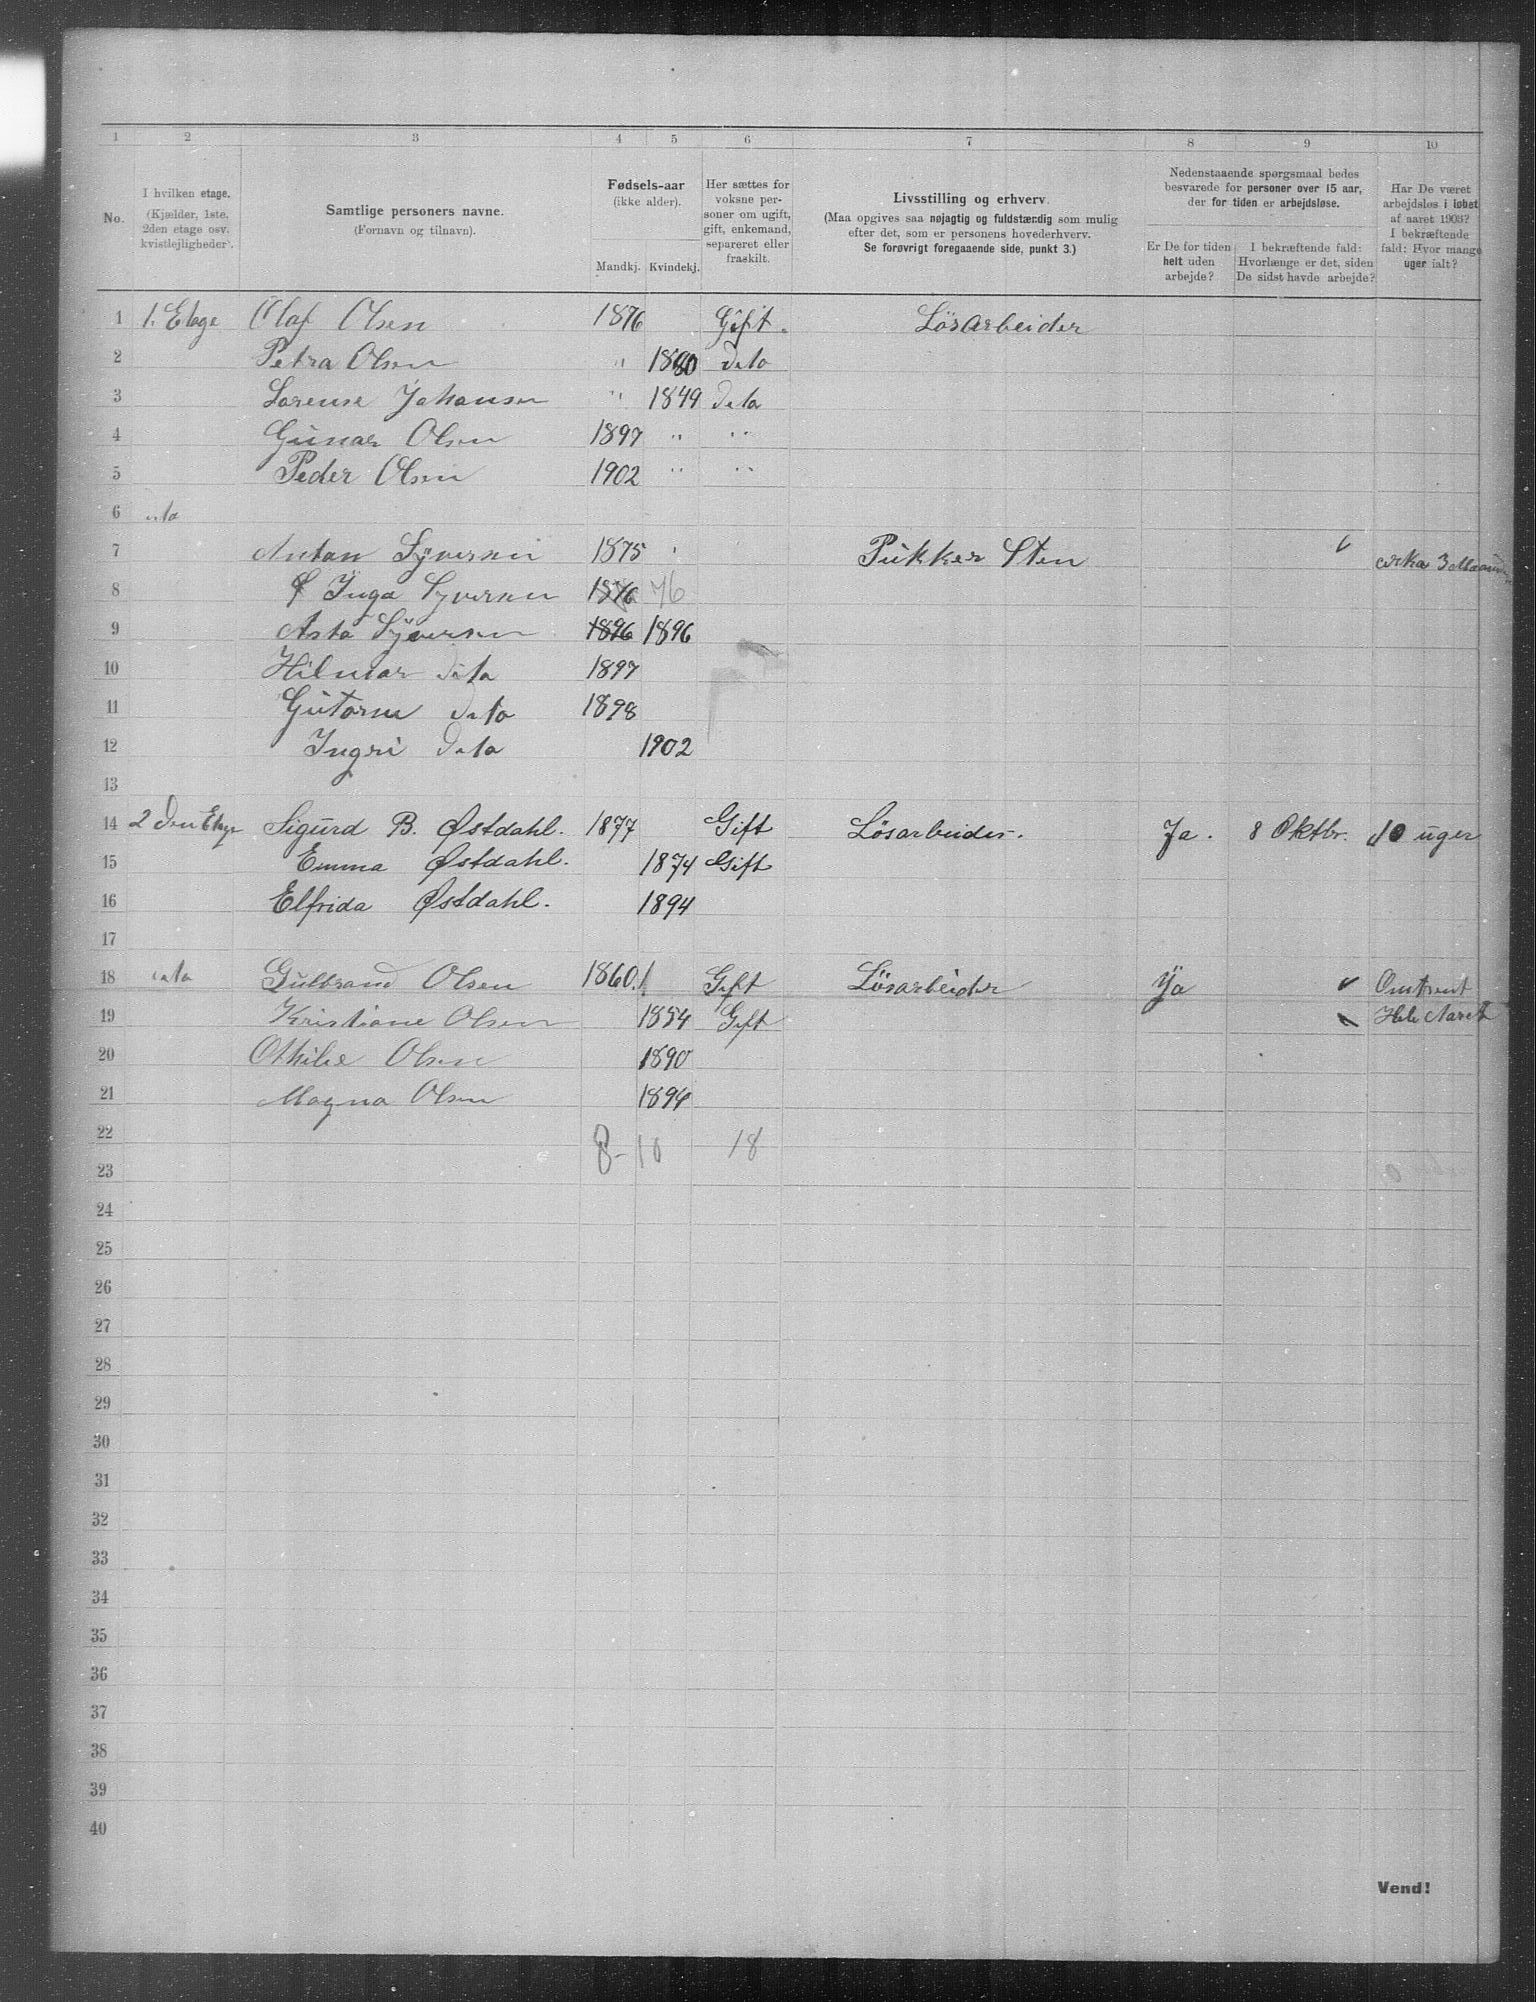 1 2 3 4 5 6 7 8 9 10
No.
I hvilken etage.
(Kjælder, 1ste,
2den etage osv.
kvistlejligheder).
Samtlige personers navne.
(Fornavn og tilnavn).
Fødsels-aar
(ikke alder).
Mandkj. Kvindekj.
Her sættes for
voksne per-
soner om ugift,
gift, enkemand,
separeret eller
fraskilt.
Livsstilling og erhverv.
(Maa opgives saa nøjagtig og fuldstændig som mulig
efter det, som er personens hovederhverv.
Se forøvrigt foregaaende side, punkt 3.)
Nedenstaaende spørgsmaal bedes
besvarede for personer over 15 aar,
der for tiden er arbejdsløse.
Er De for tiden
helt uden
arbejde?
I bekræftende fald:
Hvorlænge er det, siden
De sidst havde arbejde?
Har De været
arbejdsløs i løbet
af aaret 1903?
I bekræftende
fald: Hvor mange
uger ialt?
1 1. Etage Olaf Olsen 1876 Gift. Lösarbeider
2 Petra Olsen " 1880 deto
3 Lorense Johansen " 1849 deto
4 Gunar Olsen 1897 " "
5 Peder Olsen 1902 " "
6 deto
7 Antan Syversen 1875 " Pukker Sten cirka 3 Maaneder
8 Inga Syversen 1876 76
9 Asta Syversen 1896 1896
10 Hilmar deto 1897
11 Gutorm deto 1898
12 Ingri deto 1902
13
14 2 den Etage Sigurd B. Østdahl. 1877 Gift Løsarbeider. Ja. 8 Oktbr. 10 uger
15 Emma Østdahl. 1874 Gift
16 Elfrida Østdahl. 1894
17
18 deto Gulbrand Olsen 1860. Gift Lösarbeider Ja Omtrent
19 Kristiane Olsen 1854 Gift Hele Aaret
20 Othilie Olsen 1890
21 Magna Olsen 1894
22 8-10 18
23
24
25
26
27
28
29
30
31
32
33
34
35
36
37
38
39
40
Vend!